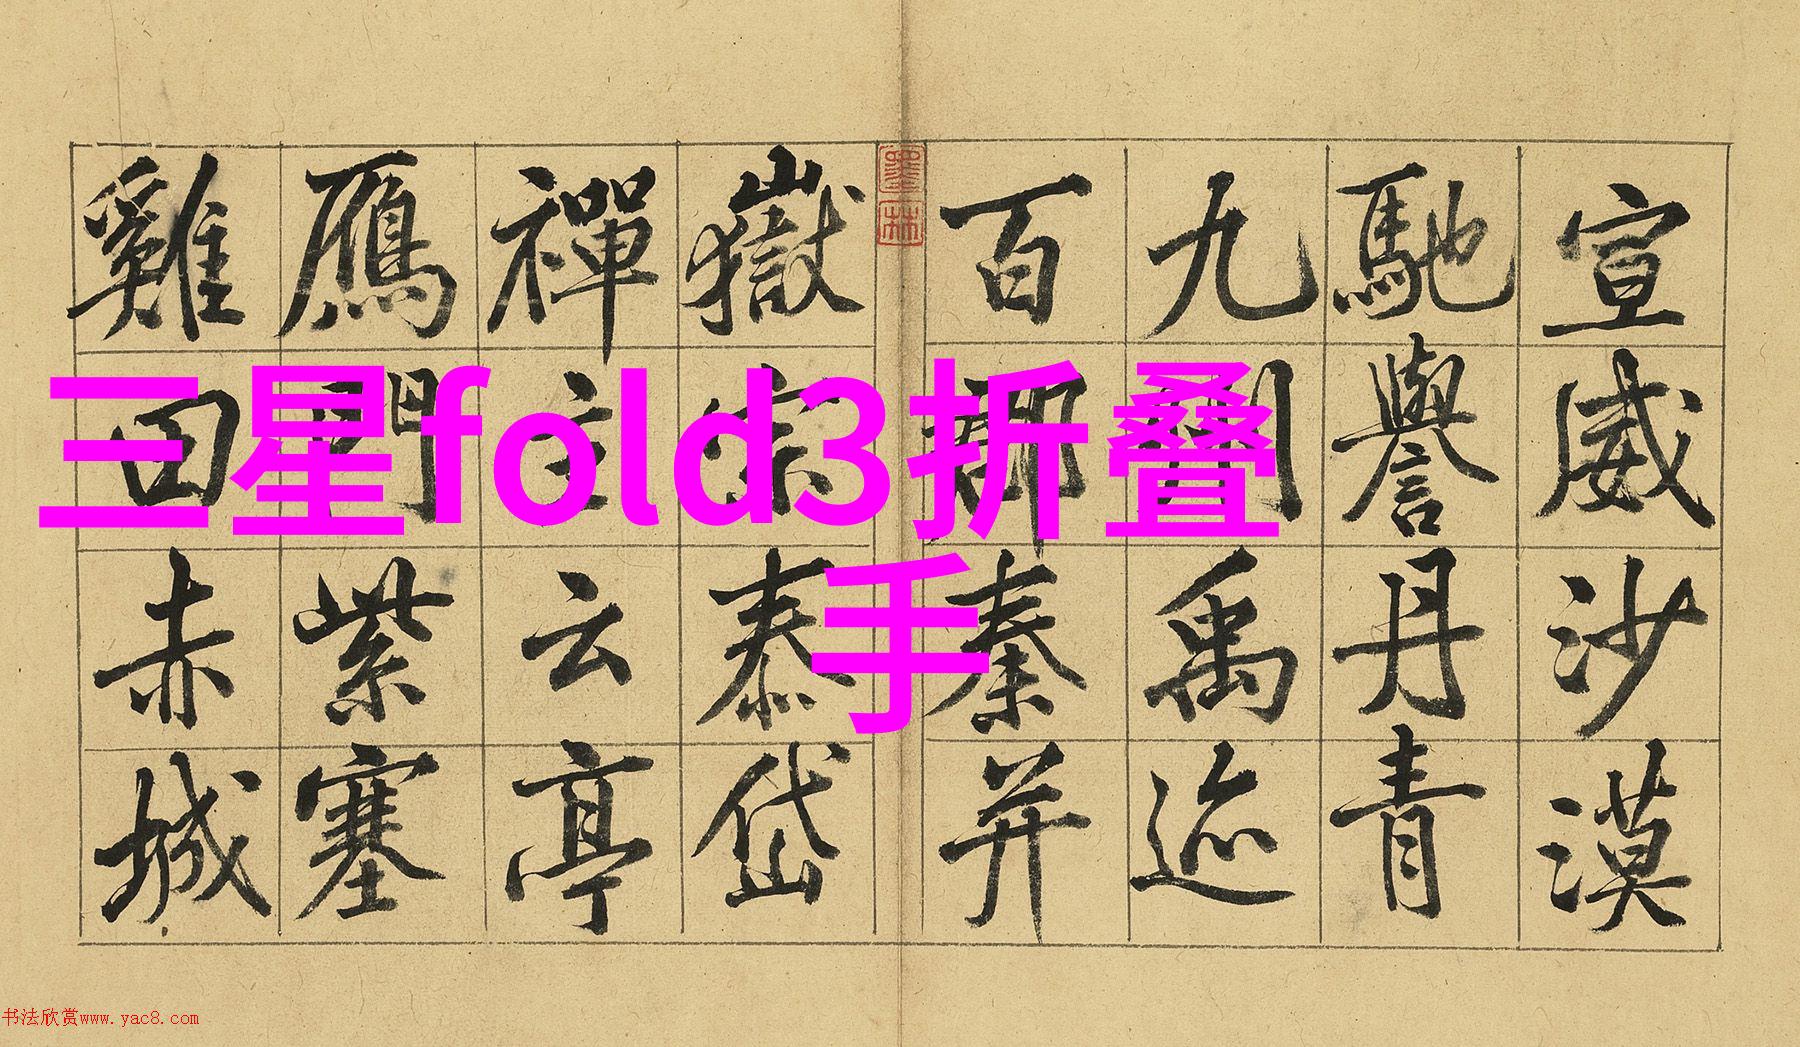 三星fold3折叠
手
宣威沙漠
馳譽丹青
九州禹迹
百郡秦并
墨林
嶽宗泰岱
禪主云亭
鴈門紫塞
雞田赤城
书法欣赏www.yac8.com